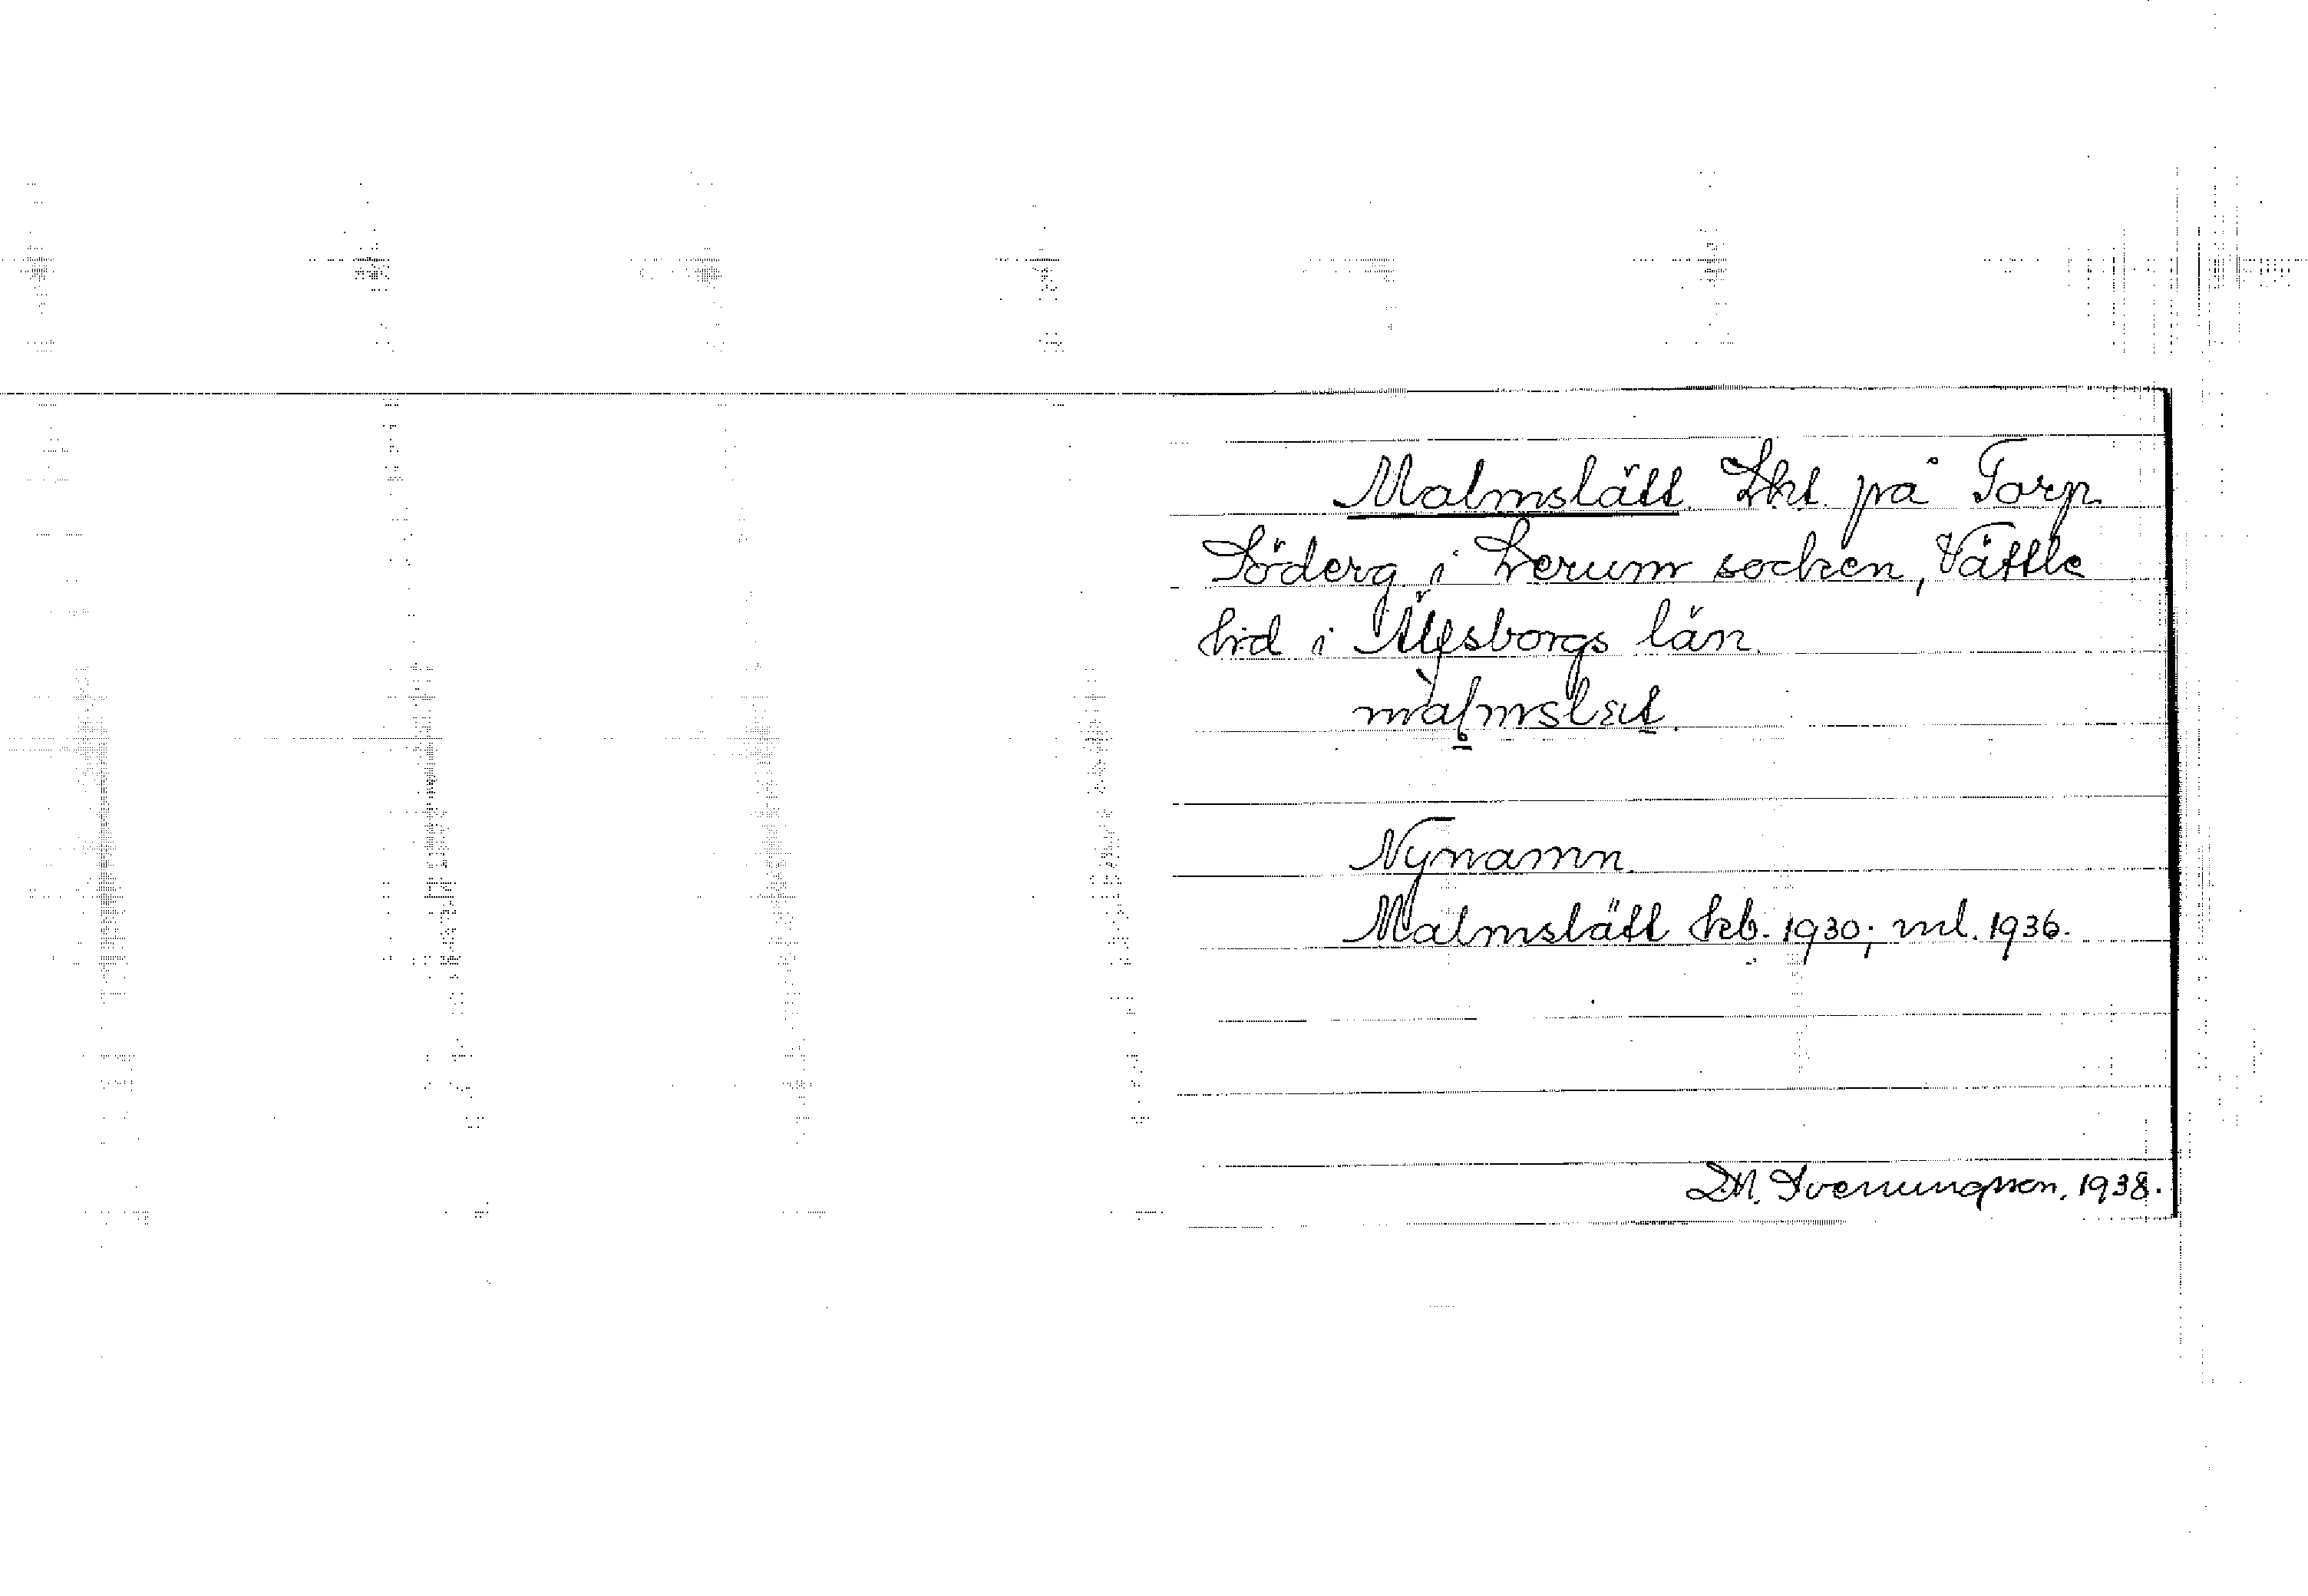 Malmslätt. Lht. på Torp
Söderg. i Lerum socken, Vättle
hd i Älvsborgs län.
màlmslæt.
Nynamn.
Malmslätt hfb. 1930; ml. 1936.
D.N. Svenungsson, 1938.